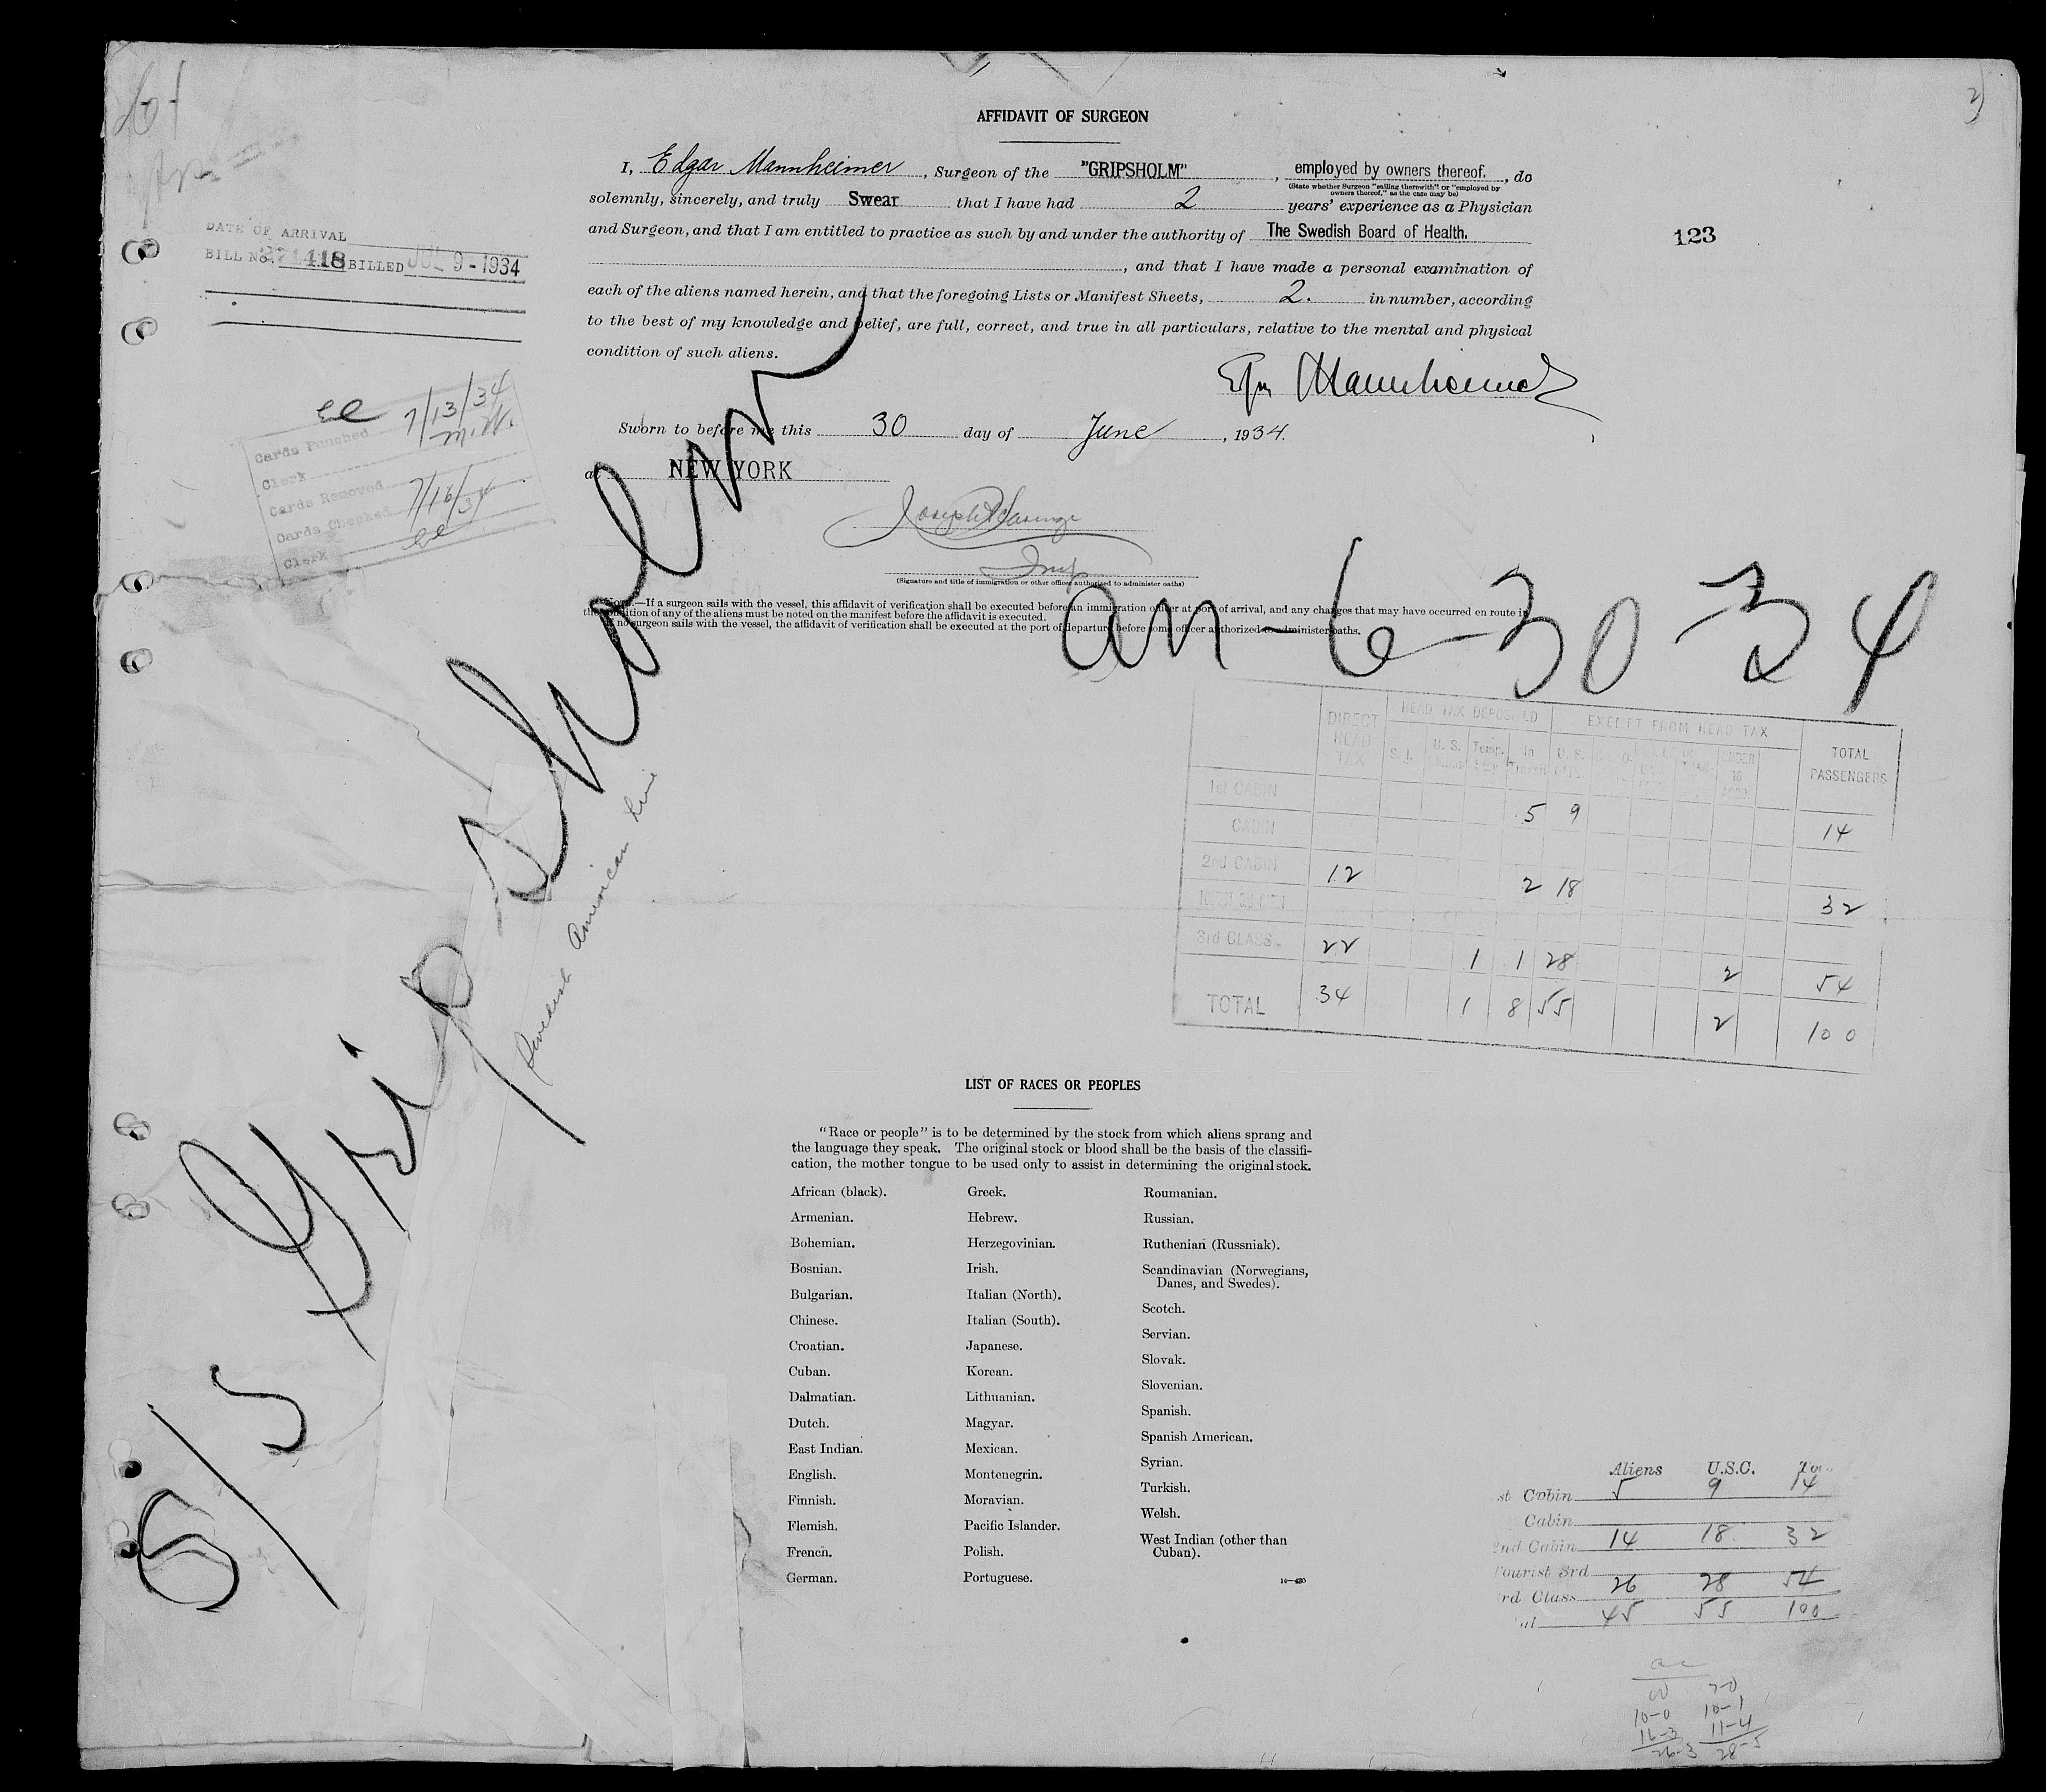 2
AFFIDAVIT OF SURGEON
I, Edgar Mannheimer, Surgeon of the "GRIPSHOLM", employed by owners thereof, do
(State whether Surgeon "sailing therewith" or "employed by
owners thereof," as the case may be)
solemnly, sincerely, and truly Swear that I have had 2 years' experience as a Physician
and Surgeon, and that I am entitled to practice as such by and under the authority of The Swedish Board of Health.
, and that I have made a personal examination of
each of the aliens named herein, and that the foregoing Lists or Manifest Sheets, 2. in number, according
to the best of my knowledge and belief, are full, correct, and true in all particulars, relative to the mental and physical
condition of such aliens.
Mannheimer
Sworn to before me this 30 day of June, 1934.
at NEW YORK
Joseph
Insp
(Signature and title of immigration or other officer authorized to administer oaths)
NOTE.—If a surgeon sails with the vessel, this affidavit of verification shall be executed before an immigration officer at port of arrival, and any changes that may have occurred en route in
the condition of any of the aliens must be noted on the manifest before the affidavit is executed.
If no surgeon sails with the vessel, the affidavit of verification shall be executed at the port of departure before some officer authorized to administer oaths.
123
DATE OF ARRIVAL
BILL No. 418 BILLED JUL 9 - 1934
ee
Cards Punched 7/13/34
Clerk M.W.
Cards Removed
Cards Checked 7/16/34
Clerk ee
S/S Gripsholm
Swedish American Line
an - 6 - 30 - 34
DIRECT HEAD TAX HEAD TAX DEPOSITED EXEMPT FROM HEAD TAX TOTAL PASSENGERS
S.I. U.S. Temp. In Transit U.S. UNDER 16
1st CABIN 5 9 14
CABIN
2nd CABIN 12 2 18 32
3rd CLASS 22 1 1 28 2 54
TOTAL 34 1 8 55 2 100
LIST OF RACES OR PEOPLES
"Race or people" is to be determined by the stock from which aliens sprang and
the language they speak. The original stock or blood shall be the basis of the classifi-
cation, the mother tongue to be used only to assist in determining the original stock.
African (black).
Armenian.
Bohemian.
Bosnian.
Bulgarian.
Chinese.
Croatian.
Cuban.
Dalmatian.
Dutch.
East Indian.
English.
Finnish.
Flemish.
French.
German.
Greek.
Hebrew.
Herzegovinian.
Irish.
Italian (North).
Italian (South).
Japanese.
Korean.
Lithuanian.
Magyar.
Mexican.
Montenegrin.
Moravian.
Pacific Islander.
Polish.
Portuguese.
Roumanian.
Russian.
Ruthenian (Russniak).
Scandinavian (Norwegians,
Danes, and Swedes).
Scotch.
Servian.
Slovak.
Slovenian.
Spanish.
Spanish American.
Syrian.
Turkish.
Welsh.
West Indian (other than
Cuban).
14—430
Aliens U.S.C.
st Cabin 5 9 14
Cabin
2nd Cabin 14 18 32
Tourist 3rd
rd Class 26 28 54
al 45 55 100
10-0 10-1
16-3 11-4
26-3 28-5